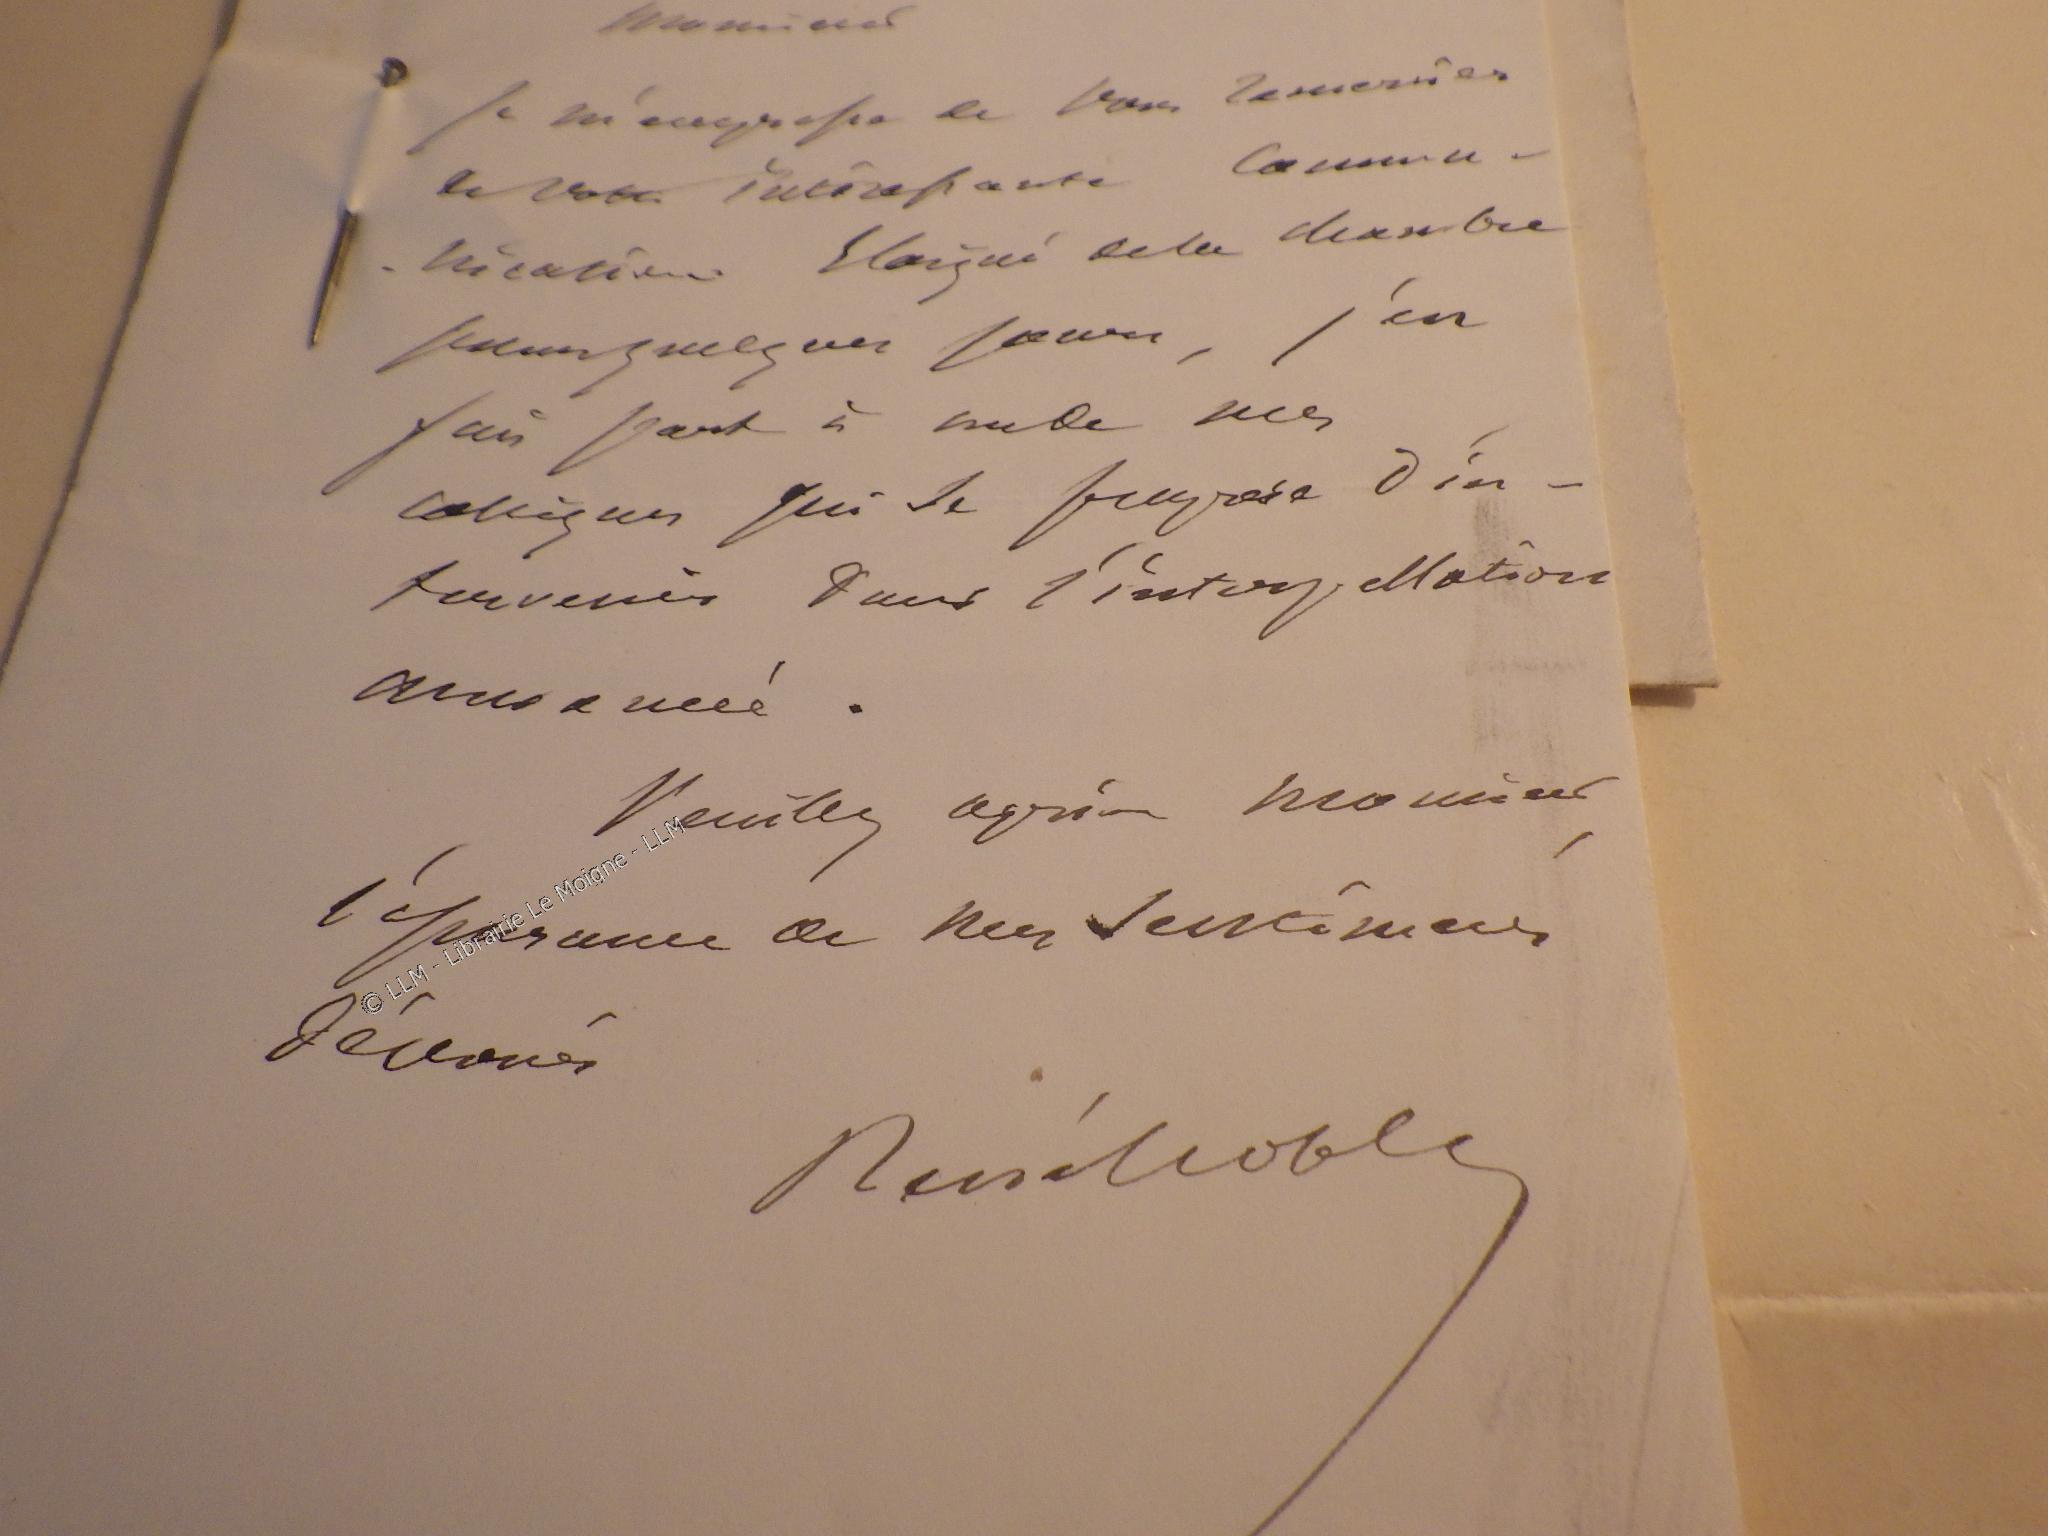 Monsieur
Je m'empresse de vous remercier
de votre intéressante commu-
-nication. Eloigné de la chambre
pour quelques jours, j'en
fais part à un de mes
collègues qui se propose d'in-
tervenir dans l'interpellation
annoncée.
Veuillez agréer Monsieur,
l'assurance de mes sentiments
dévoués
© LLM - Librairie Le Moigne - LLM